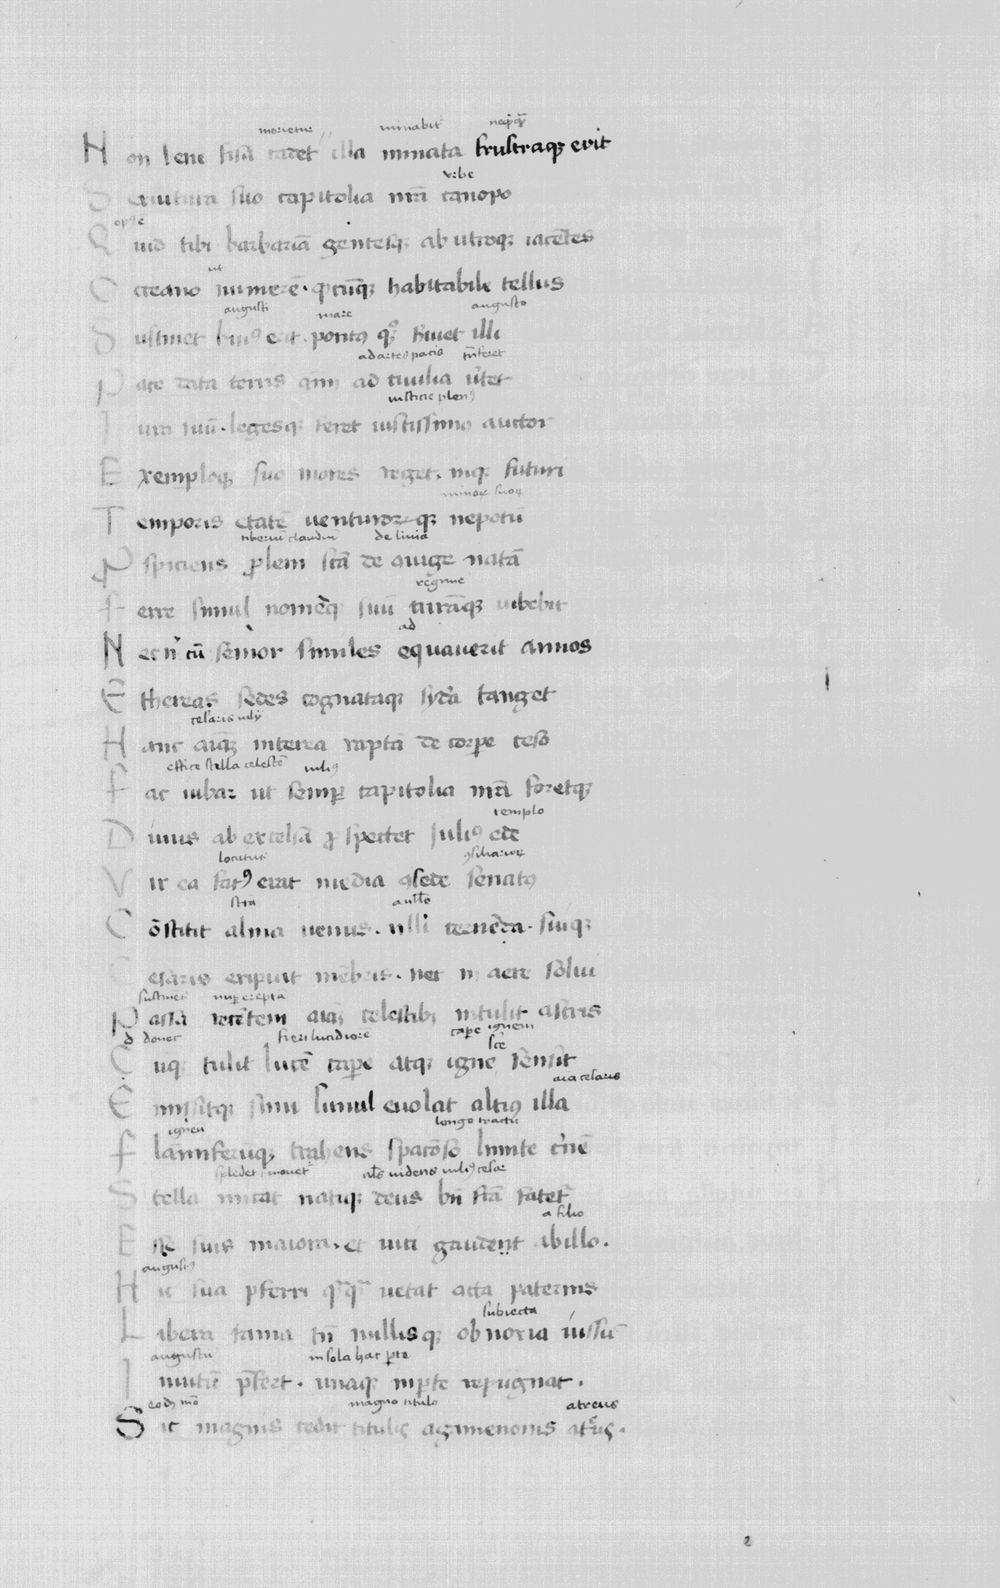 morietur minabit neq̃q̃
Non bene fisa cadet illa minata frustraqꝫ erit
vrbe
Seruitura suo capitolia nr̃a canopo
Quid tibi barbariã gentesqꝫ ab utroqꝫ iacẽtes
ut
Occeano numerẽ · q̃cũqꝫ habitabile tellus
augusti mare augusto
Sustinet huiꝰ erit · pontꝰ qꝫ ẜuiet illi
ad artes pacis
Pace data terris aĩm ad ciuilia ũtet
iusticie plenꝰ
Iura suũ · legesqꝫ feret iustissimo auctor
Exemploqꝫ suo mores reget · inqꝫ futuri
minoꝝ suoꝝ
Temporis etatẽ venturorꝫqꝫ nepotũ
tiberiũ claudiũ de liuia
Pspiciens ꝓlem sc̃ã de coniuge natã
regimine
Ferre simul nomẽqꝫ suũ curãqꝫ iubebit
ad
Nec nͥ cũ senior similes equauerit annos
Ethereas sedes cognataqꝫ syďa tanget
cesaris iulij
Hanc aĩãꝫ interea raptã de corpe ceso
effice stella celestẽ iuliꝰ
Fac iubar ut semꝑ capitolia nr̃a foretqꝫ
templo
Diuus ab excelsa ꝓspectet iuliꝰ ede
locutus ꝯsiliarioꝝ
Vix ea fatꝰ erat media ꝯ sede senatꝰ
Cõstitit alma uenus · nulli cernẽda · suiqꝫ
Cesaris eripuit mẽbris · nec in aere solui
sustinet nuꝑ erepta
Passa recẽtem aĩaꝫ celestibꝫ intulit astris
donec fieri lucidiorẽ caꝑe ignem
Duqꝫ tulit lucẽ caꝑe atqꝫ ignẽ sensit
aĩa cesaris
Emisitqꝫ sinu lunul euolat altiꝰ illa
igneũ longo tractu
Flãmiferũqꝫ trahens spacioso limite crinẽ
spledet ĩmouet uidens iuliꝰ cesar
Stella micat natiqꝫ deus bñ fc̃ã fatetᷣ
a filio
Esse suis maiora · et uici gaudent ab illo ·
augustꝰ
Hic sua pferri q̃q̃ uetat acta paternis
subiecta
Libera fama tñ nullisqꝫ obnoxia iussũ
augustũ in sola hac pte
Inuitũ pfert · unaqꝫ inpte repugnat ·
eodẽ mõ magno titulo atreus
Sic magnis cedit titulis agamenonis atr̃us ·